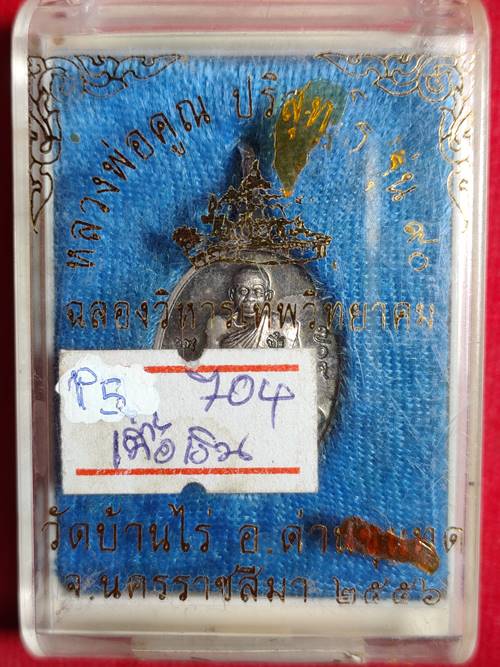 หลวงพ่อคูณ ปริสุทฺโธ รุ่น
ฉลองวิหารเทพวิทยาคม
P5 704
เนื้อเงิน
วัดบ้านไร่ อ.ด่านขุนทด
จ.นครราชสีมา ๒๕๕๖